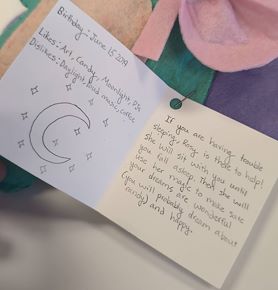 Birthday: June 15 2019
Likes: Art, Candy, Moonlight, PJs
Dislikes: Daylight, loud music, coffee
If you are having trouble
sleeping, Rosy is there to help!
She will sit with you until
you fall asleep. Then she will
use her magic to make sure
your dreams are wonderful
(you will probably dream about
candy) and happy.